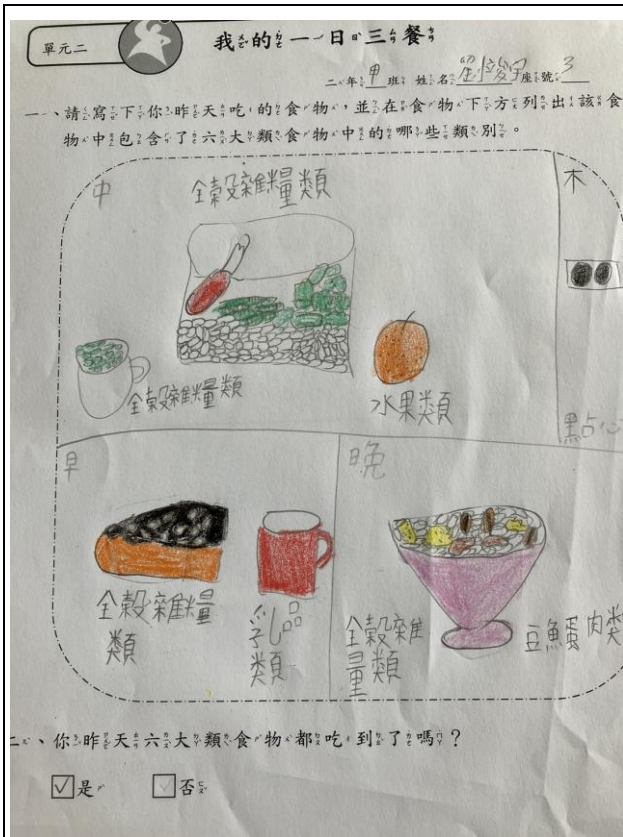 單元二
我的一日三餐
二年甲班 姓名 座號3
一、請寫下你昨天吃的食物，並在食物下方列出該食
物中包含了六大類食物中的哪些類別。
中
全榖雜糧類
木
全榖雜糧類
水果類
點心
早
晚
全榖雜糧
類
乳品
類
全榖雜
糧類
豆魚蛋肉类
二、你昨天六大類食物都吃到了嗎？
☑是 ☐否